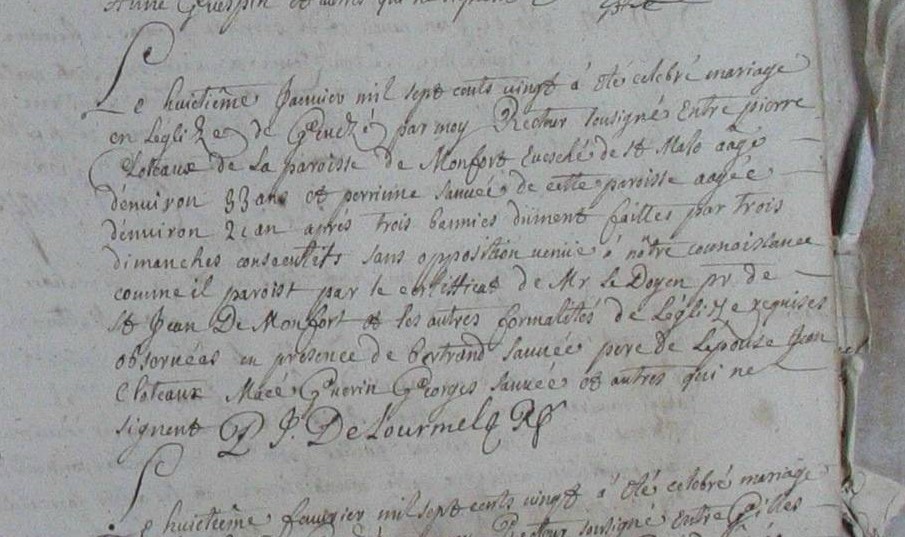 Anne Guespin et autres qui ne signent
Le huitiême Janvier mil sept cents vingt á êté celebré mariage
en Leglize de par moy Recteur sousigné Entre pierre
Cloteaux de La paroisse de Monfort Evesché de st Malo aagé
dénuiron 33 ans et perrinne Sauueé de cette paroisse aagée
dénuiron 2i an aprés trois bannies düment faittes par trois
dimanches consecutifs sans opposition venüe á nôtre connaissance
comme il paroist par le certifficat de Mr Le Doyen pr de
st Jean De Monfort et les autres formalités de Léglize requises
obseruées en présence de bertrand Sauuée pere de Lépouse Jean
Cloteaux Macé Guerin Georges Sauuée et autres qui ne
signent P J. De Lourmel Rr
Le huitiême feurier mil sept cents vingt á êté celebré mariage
Recteur sousigné Entre Gilles